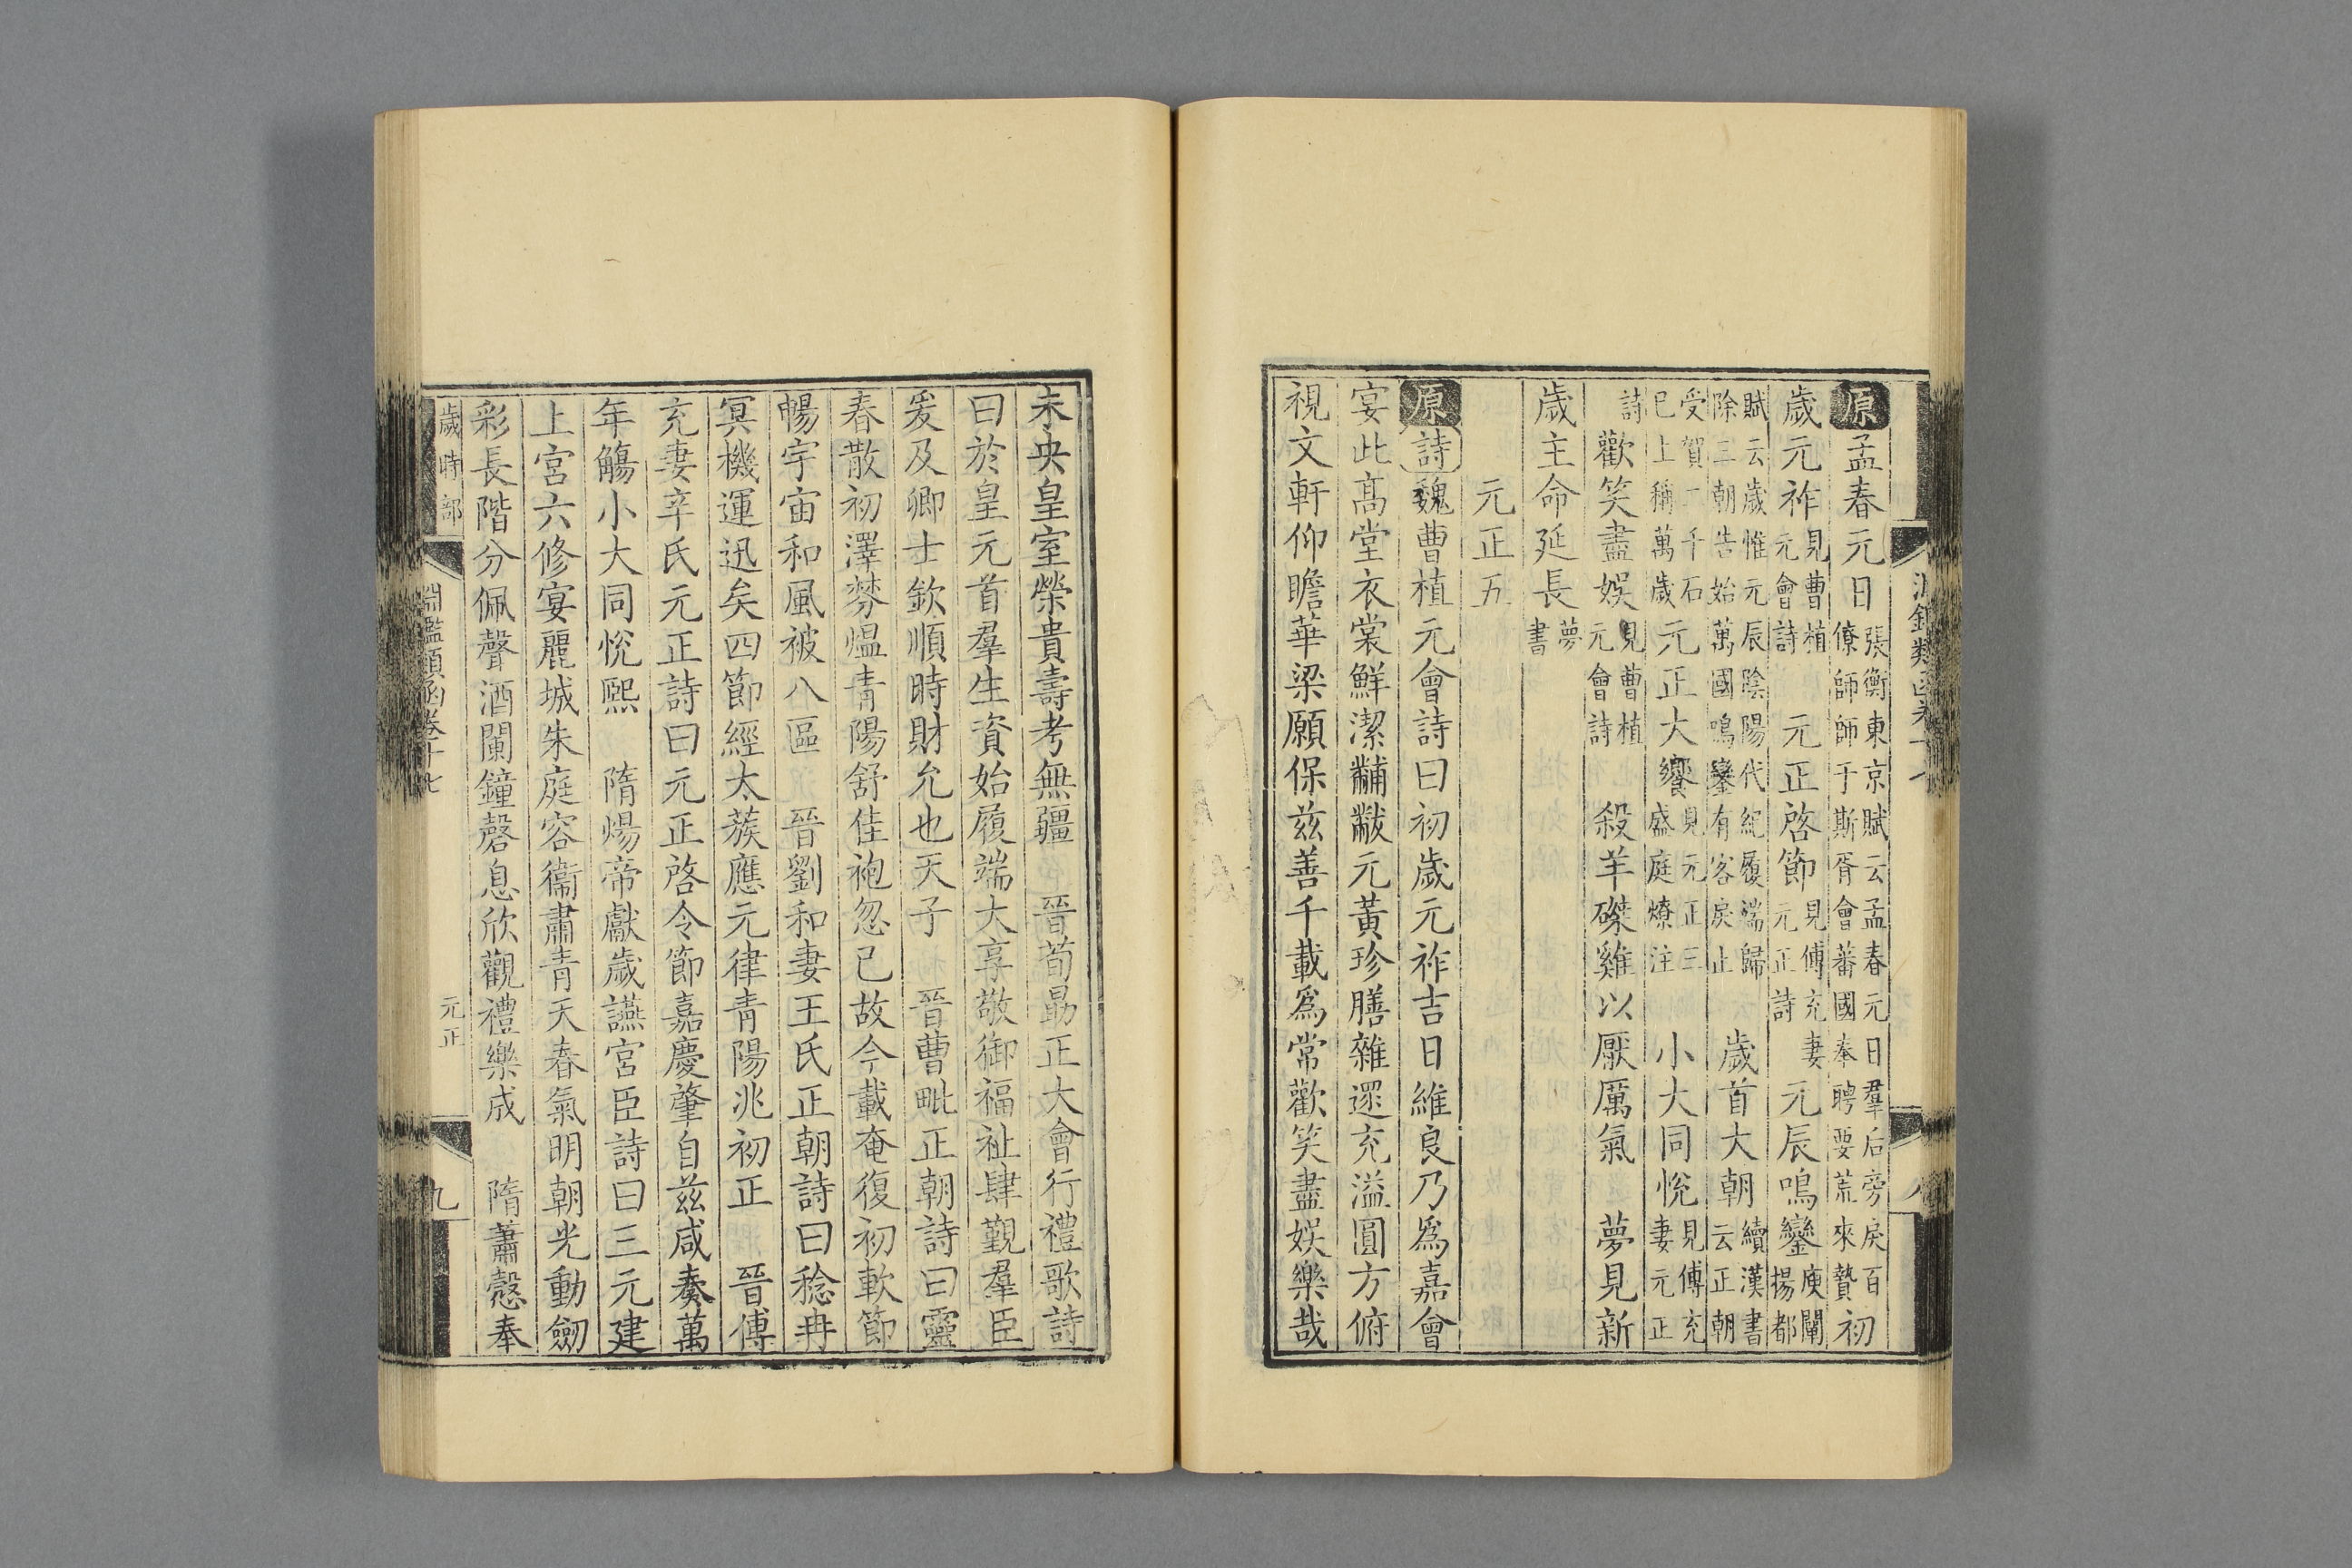 原孟春元日張衡東京賦云孟春元日羣后旁戾百僚師師于斯胥會蕃國奉聘要荒來贄初
歲元祚見曹植元會詩元正啓節見傅充妻元正詩元辰鳴鑾庾闡揚都
賦云歲惟元辰陰陽代紀履端歸除三朝告始萬國鳴鑾有客戾止歲首大朝續漢書云正朝
受賀二千石已上稱萬歲元正大饗見元正三盛庭燎注小大同悅見傅充妻元正
詩歡笑盡娛見曹植元會詩殺羊磔雞以厭厲氣夢見新
歲主命延長夢書
元正五
原詩魏曹植元會詩曰初歲元祚吉日維良乃爲嘉會
宴此高堂衣裳鮮潔黼黻元黃珍膳雜遝充溢圓方俯
視文軒仰瞻華梁願保茲善千載爲常歡笑盡娛樂哉
未央皇室榮貴壽考無疆晉荀勗正大會行禮歌詩
曰於皇元首羣生資始履端大享敬御福祉肆覲羣臣
爰及卿士欽順時財允也天子晉曹毗正朝詩曰靈
春散初澤棼熅青陽舒佳袍忽已故今載奄復初軟節
暢宇宙和風被八區晉劉和妻王氏正朝詩曰稔冉
冥機運迅矣四節經太蔟應元律青陽兆初正晉傅
充妻辛氏元正詩曰元正啓令節嘉慶肇自茲咸奏萬
年觴小大同悅熙隋煬帝獻歲讌宮臣詩曰三元建
上宮六修宴麗城朱庭容衞肅青天春氣明朝光動劒
彩長階分佩聲酒闌鐘磬息欣觀禮樂成隋蕭慤奉
歲時部 淵鑑類函卷十七 元正 九